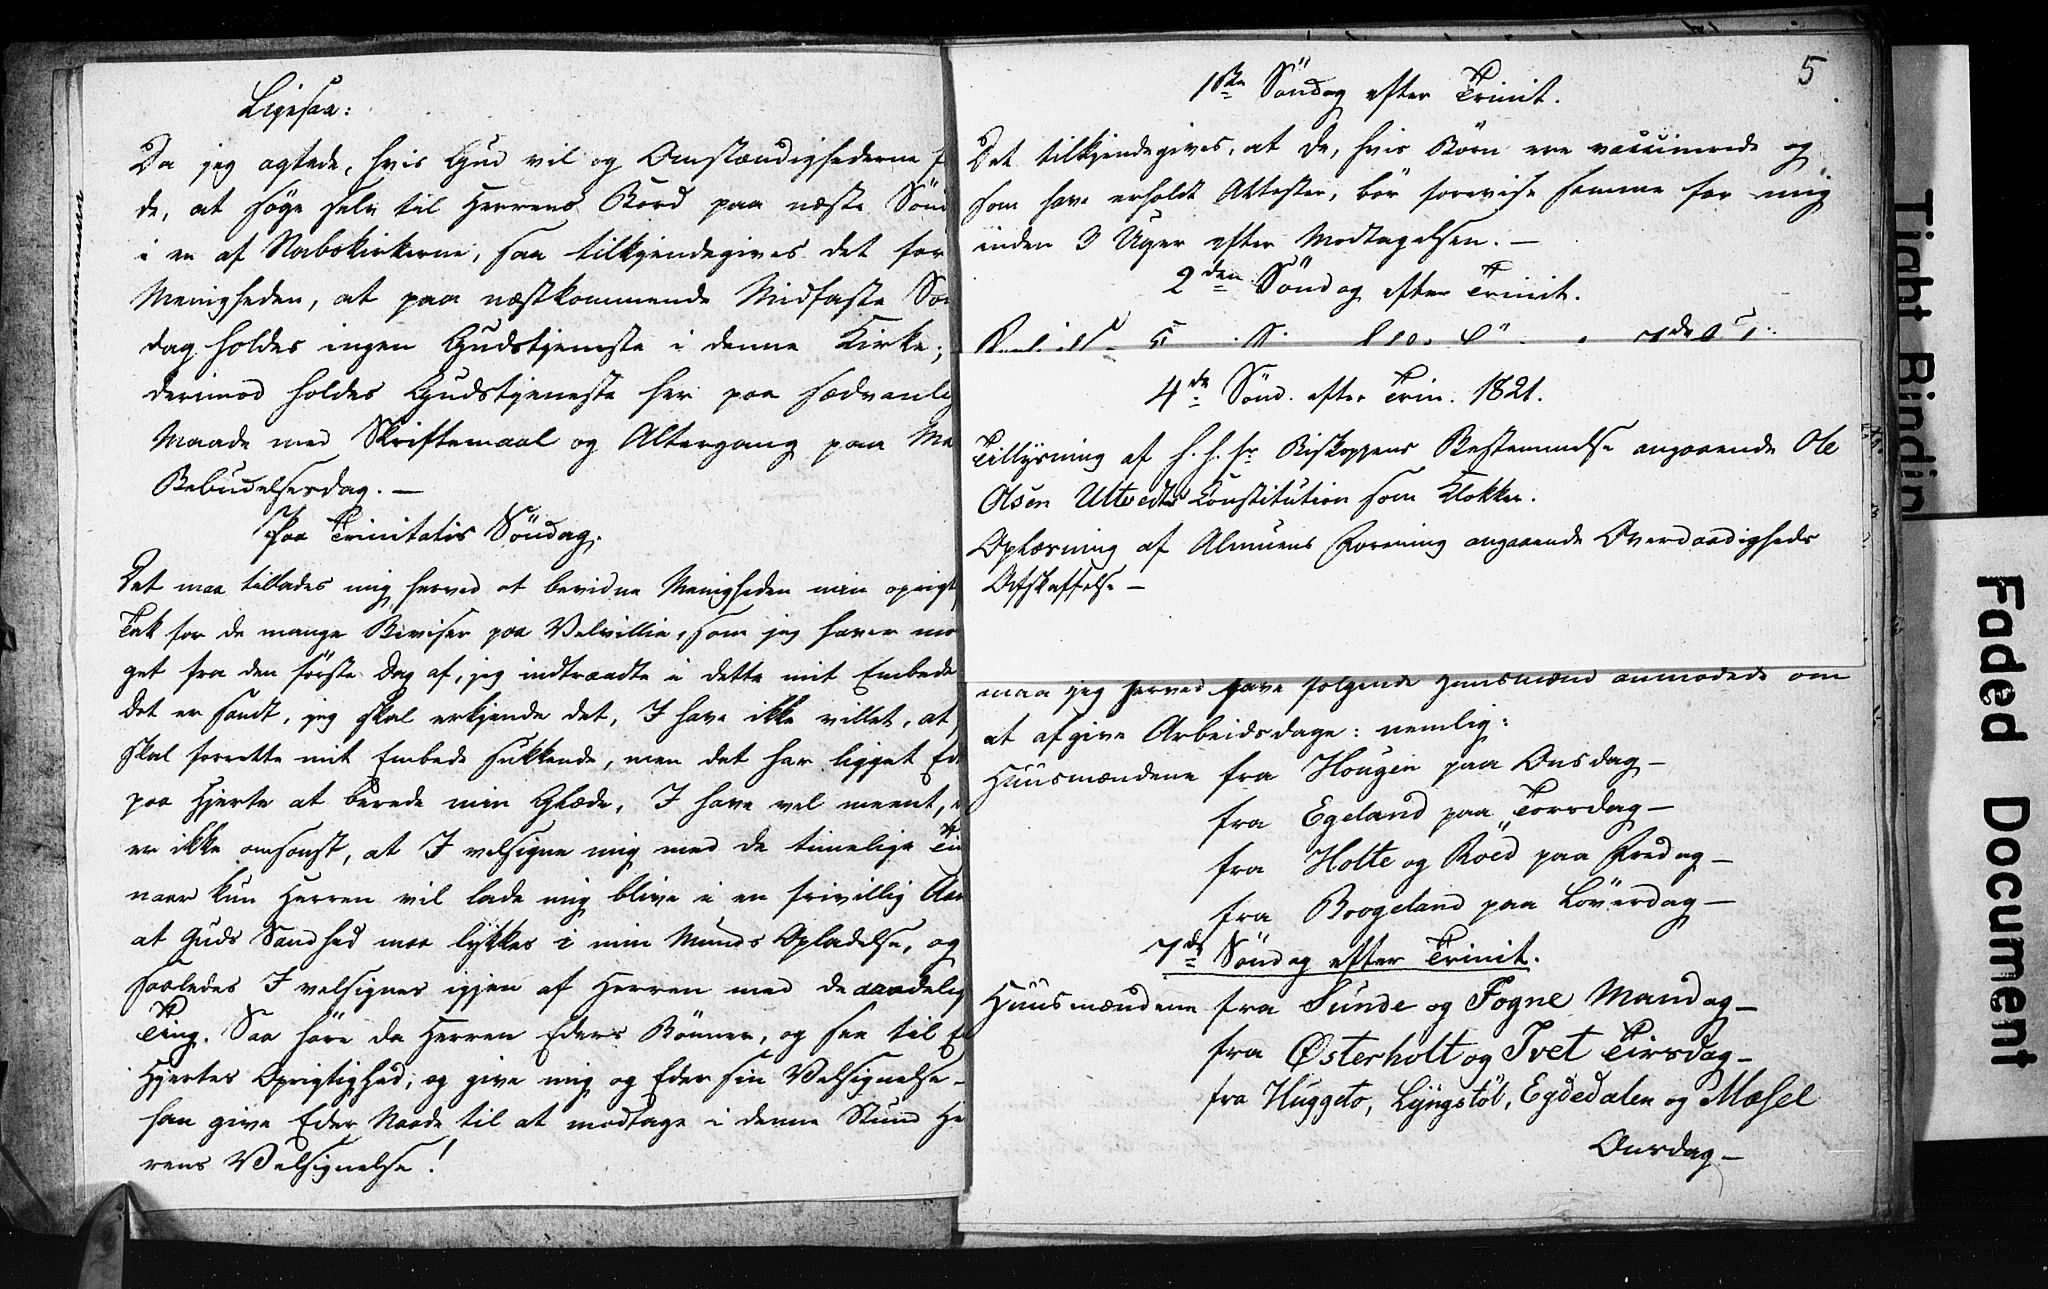 Ligesaa:
Da jeg agtede, hvis Gud vil og Omstændighederne
de, at søge selv til Herrens Bord paa næste Sönd
i en af Nabokirkerne, saa tilkjendegives det for
Menigheden, at paa næstkommende Midfaste Sön
dag holdes ingen Gudstjeneste i denne Kirke;
derimod holdes Gudstjeneste her paa sædvanlig
Maade med Skriftemaal og Altergang paa Ma
Bebudelsesdag. —
Paa Trinitatis Söndag.
Det maa tillades mig herved at bevidne Menigheden min oprigt
Tak for de mange Beviser paa Velvillie, som jeg haver mo
get fra den første Dag af, jeg indtraadte i dette mit Embede
Det er sandt, jeg skal erkjende det, I have ikke villet, at
skal forrette mit Embede sukkende, men det har ligget Ed
paa Hjerte at berede min Glæde, I have vel meent,
er ikke omsonst, at I velsigne mig med de timelige Tin
naar kun Herren vil lade mig blive i en frivillig Aan
at Guds Sandhed maa lykkes i min Munds Opladelse, og
saaledes I velsignes igjen af Herren med de aandelig
Ting. Saa høre da Herren Eders Bönner, og see til E
Hjertes Oprigtighed, og give mig og Eder sin Velsignelse –
han give Eder Naade til at modtage i denne Stund He
rens Velsignelse!
5
1ste Söndag efter Trinit.
Det tilkjendegives, at de, hvis Börn ere vaccinerede og
som have erholdt Attester, bör forevise samme for mig
inden 3 Uger efter Modtagelsen. —
2den Söndag efter Trinit.
4de Sönd. efter Trin. 1821.
Tillysning af h. h. hr Biskoppens Bestemmelse angaaende Ole
Olsen Ultvedts Constitution som Klokker.
Oplæsning af Almuens Forening angaaende Overdaadigheds
Afskaffelse —
maa jeg herved have følgende Huusmænd anmodede om
at afgive Arbeidsdage: nemlig:
Huusmændene fra Hougen paa Onsdag —
fra Egeland paa Torsdag —
fra Holte og Roed paa Fredag —
fra Broegeland paa Löverdag —
7de Söndag efter Trinit.
Huusmændene fra Sunde og Fogne Mandag —
fra Østerholt og Ivet Tirsdag —
fra Huggeto, Lyngstöl, Egdedalen og Mæsel
Onsdag —
Tight Bindin
Faded Document